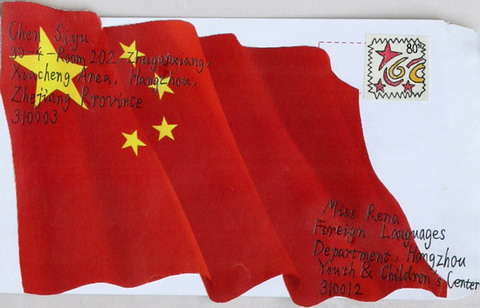 Chen Siyu
Room 202 Zhuganxiang,
Xiacheng Area, Hangzhou,
Zhejiang Province
310003
80分
Miss Rena
Foreign Languages
Department, Hangzhou
Youth & Children's Center
310012